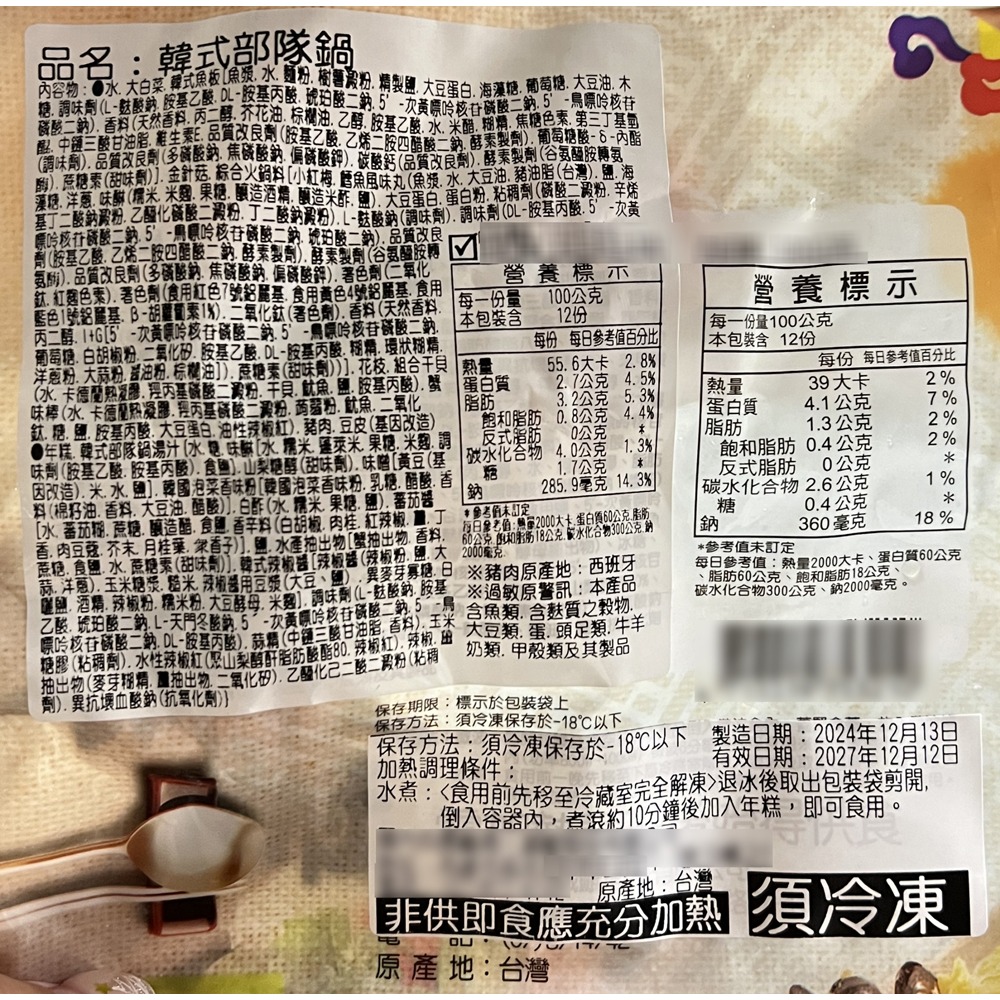 品名：韓式部隊鍋
內容物：●水. 大白菜. 韓式魚板[魚漿. 水. 麵粉. 樹薯澱粉. 精製鹽. 大豆蛋白. 海藻糖. 葡萄糖. 大豆油. 木
糖. 調味劑(L-麩酸鈉. 胺基乙酸. DL-胺基丙酸. 琥珀酸二鈉. 5'-次黃嘌呤核苷磷酸二鈉. 5'-鳥嘌呤核苷
磷酸二鈉). 香料(天然香料. 丙二醇. 芥花油. 棕櫚油. 乙醇. 胺基乙酸. 水. 米醋. 糊精. 焦糖色素. 第三丁基氫
醌. 中鏈三酸甘油脂. 維生素E. 品質改良劑(胺基乙酸. 乙烯二胺四醋酸二鈉. 酵素製劑). 葡萄糖酸-δ-內酯
(調味劑). 品質改良劑(多磷酸鈉. 焦磷酸鈉. 偏磷酸鉀). 碳酸鈣(品質改良劑). 酵素製劑(谷氨醯胺轉氨
酶). 蔗糖素(甜味劑)]. 金針菇. 綜合火鍋料[小紅莓. 鱈魚風味丸(魚漿. 水. 大豆油. 豬油脂(台灣). 鹽. 海
藻糖. 洋蔥. 味醂(糯米. 米麴. 果糖. 釀造酒精. 釀造米酢. 鹽). 大豆蛋白. 蛋白粉. 粘稠劑(磷酸二澱粉. 辛烯
基丁二酸鈉澱粉. 乙醯化磷酸二澱粉. 丁二酸鈉澱粉). L-麩酸鈉(調味劑). 調味劑(DL-胺基丙酸. 5'-次黃
嘌呤核苷磷酸二鈉. 5'-鳥嘌呤核苷磷酸二鈉. 琥珀酸二鈉). 品質改良
劑(胺基乙酸. 乙烯二胺四醋酸二鈉. 酵素製劑). 酵素製劑(谷氨醯胺轉
氨酶). 品質改良劑(多磷酸鈉. 焦磷酸鈉. 偏磷酸鉀). 著色劑(二氧化
鈦. 紅麴色素). 著色劑(食用紅色7號鋁麗基. 食用黃色4號鋁麗基. 食用
藍色1號鋁麗基. B-胡蘿蔔素1%). 二氧化鈦(著色劑). 香料(天然香料.
丙二醇. I+G[5'-次黃嘌呤核苷磷酸二鈉. 5'-鳥嘌呤核苷磷酸二鈉.
葡萄糖. 白胡椒粉. 二氧化矽. 胺基乙酸. DL-胺基丙酸. 糊精. 環狀糊精.
洋蔥粉. 大蒜粉. 醬油粉. 棕櫚油]). 蔗糖素(甜味劑))]. 花枝. 組合干貝
(水. 卡德蘭熱凝膠. 羥丙基磷酸二澱粉. 干貝. 魷魚. 鹽. 胺基丙酸). 蟹
味棒(水. 卡德蘭熱凝膠. 羥丙基磷酸二澱粉. 蒟蒻粉. 魷魚. 二氧化
鈦. 糖. 鹽. 胺基丙酸. 大豆蛋白. 油性辣椒紅). 豬肉. 豆皮(基因改造)
●年糕. 韓式部隊鍋湯汁[水. 糖. 味醂[水. 糯米. 蓬萊米. 果糖. 米麴. 調
味劑(胺基乙酸. 胺基丙酸). 食鹽]. 山梨糖醇(甜味劑). 味噌[黃豆(基
因改造). 米. 水. 鹽]. 韓國泡菜香味粉[韓國泡菜香味粉. 乳糖. 醋酸. 香
料(棉籽油. 香料. 大豆油. 醋酸)]. 白酢(水. 糯米. 果糖. 鹽). 蕃茄醬
[水. 蕃茄糊. 蔗糖. 釀造醋. 食鹽. 香辛料(白胡椒. 肉桂. 紅辣椒. 薑. 丁
香. 肉豆蔻. 芥末. 月桂葉. 眾香子)]. 鹽. 水產抽出物[蟹抽出物. 香料.
蔗糖. 食鹽. 水. 蔗糖素(甜味劑)]. 韓式辣椒醬(辣椒粉. 鹽. 大
蒜. 洋蔥). 玉米糖漿. 糙米. 辣椒醬用豆漿(大豆. 鹽). 異麥芽寡糖. 日
曬鹽. 酒精. 辣椒粉. 糯米粉. 大豆酵母. 米麴]. 調味劑(L-麩酸鈉. 胺基
乙酸. 琥珀酸二鈉. L-天門冬酸鈉. 5'-次黃嘌呤核苷磷酸二鈉. 5'-鳥
嘌呤核苷磷酸二鈉. DL-胺基丙酸). 蒜精(中鏈三酸甘油脂. 香料). 玉米
糖膠(粘稠劑). 水性辣椒紅(聚山梨醇酐脂肪酸酯80. 辣椒紅). 辣椒. 薑
抽出物(麥芽糊精. 薑抽出物. 二氧化矽). 乙醯化己二酸二澱粉(粘稠
劑). 異抗壞血酸鈉(抗氧化劑)}
營養標示
每一份量 100公克
本包裝含 12份
每份 每日參考值百分比
熱量 55.6大卡 2.8%
蛋白質 2.7公克 4.5%
脂肪 3.2公克 5.3%
飽和脂肪 0.8公克 4.4%
反式脂肪 0公克 *
碳水化合物 4.0公克 1.3%
糖 1.7公克 *
鈉 285.9毫克 14.3%
*參考值未訂定
每日參考值：熱量2000大卡. 蛋白質60公克. 脂肪
60公克. 飽和脂肪18公克. 碳水化合物300公克. 鈉
2000毫克.
※豬肉原產地：西班牙
※過敏原警訊：本產品
含魚類. 含麩質之穀物.
大豆類. 蛋. 頭足類. 牛羊
奶類. 甲殼類及其製品
營養標示
每一份量100公克
本包裝含 12份
每份 每日參考值百分比
熱量 39大卡 2%
蛋白質 4.1公克 7%
脂肪 1.3公克 2%
飽和脂肪 0.4公克 2%
反式脂肪 0公克 *
碳水化合物 2.6公克 1%
糖 0.4公克 *
鈉 360毫克 18%
*參考值未訂定
每日參考值：熱量2000大卡、蛋白質60公克
、脂肪60公克、飽和脂肪18公克、
碳水化合物300公克、鈉2000毫克。
保存期限：標示於包裝袋上
保存方法：須冷凍保存於-18℃以下
保存方法：須冷凍保存於-18℃以下
製造日期：2024年12月13日
有效日期：2027年12月12日
加熱調理條件：
水煮：<食用前先移至冷藏室完全解凍>退冰後取出包裝袋剪開,
倒入容器內，煮滾約10分鐘後加入年糕，即可食用。
原產地：台灣
非供即食應充分加熱
須冷凍
原產地：台灣